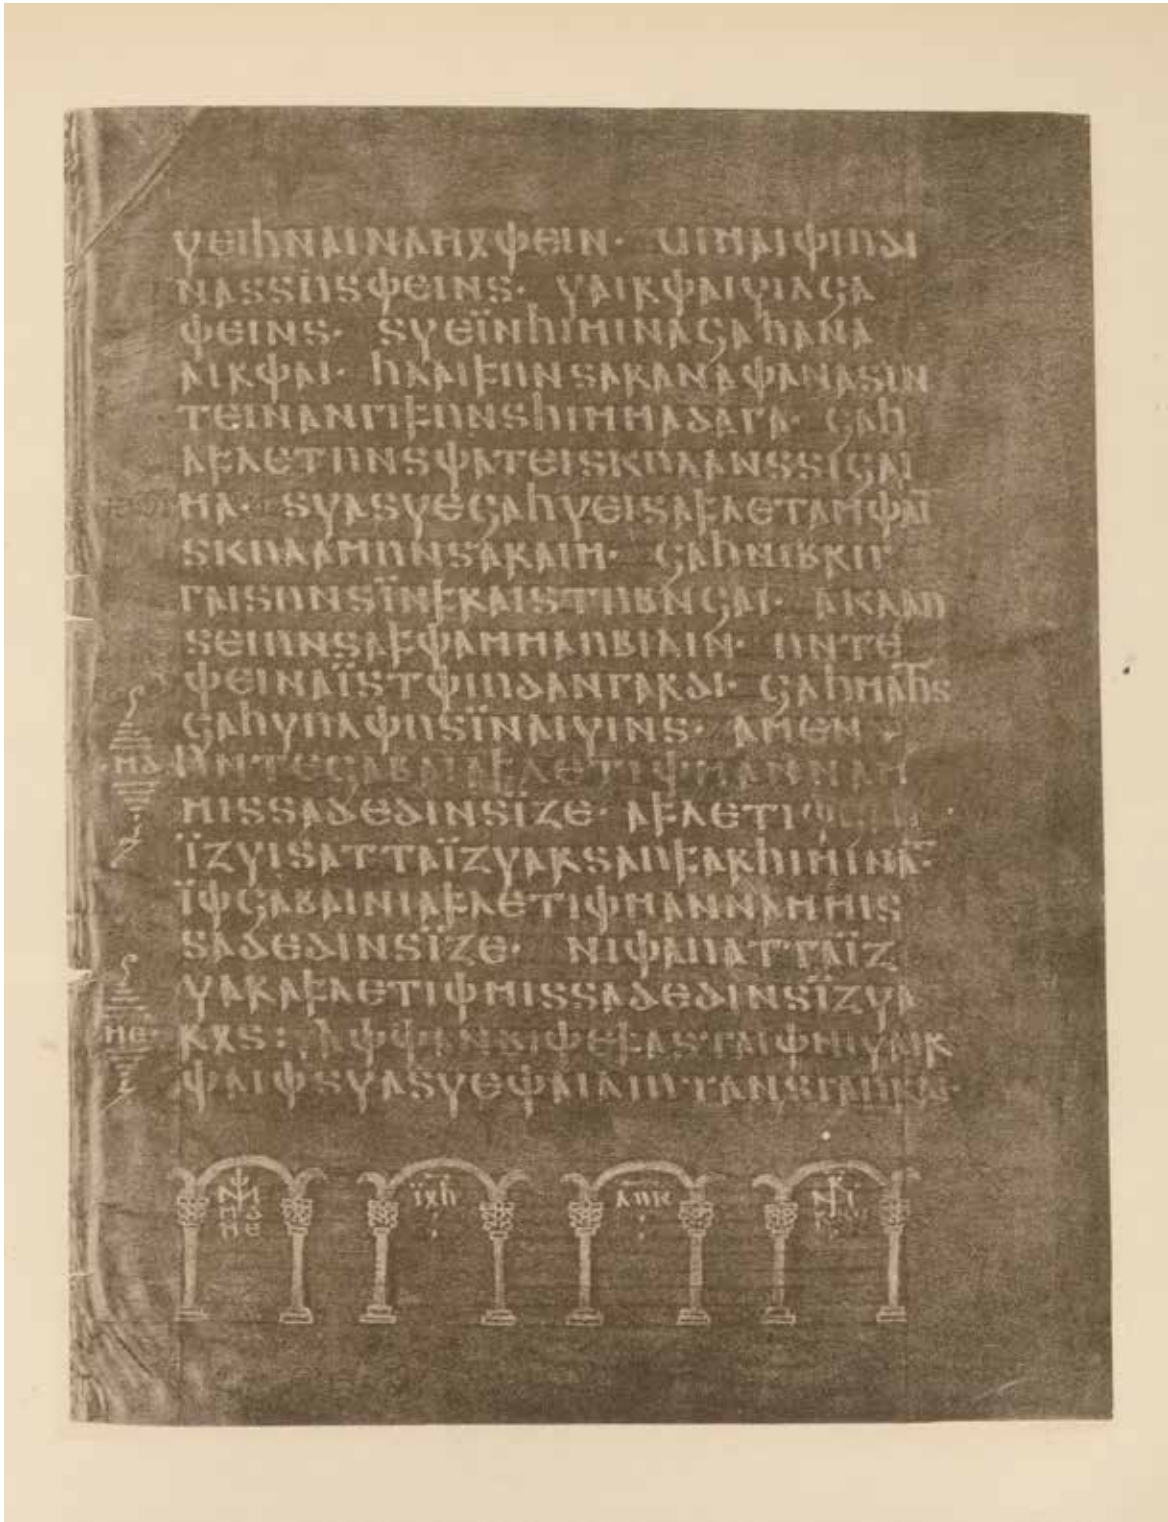 𐍅𐌴𐌹𐌷𐌽𐌰𐌹𐌽𐌰𐌼𐍉𐌸𐌴𐌹𐌽· 𐌵𐌹𐌼𐌰𐌹𐌸𐌹𐌿𐌳𐌹
𐌽𐌰𐍃𐍃𐌿𐍃𐌸𐌴𐌹𐌽𐍃· 𐍅𐌰𐌹𐍂𐌸𐌰𐌹𐍅𐌹𐌻𐌾𐌰
𐌸𐌴𐌹𐌽𐍃· 𐍃𐍅𐌴𐌹̈𐌽𐌷𐌹𐌼𐌹𐌽𐌰𐌾𐌰𐌷𐌰𐌽𐌰
𐌰𐌹𐍂𐌸𐌰𐌹· 𐌷𐌻𐌰𐌹𐍆𐌿𐌽𐍃𐌰𐍂𐌰𐌽𐌰𐌸𐌰𐌽𐌰𐍃𐌹𐌽
𐍄𐌴𐌹𐌽𐌰𐌽𐌲𐌹𐍆𐌿𐌽𐍃𐌷𐌹𐌼𐌼𐌰𐌳𐌰𐌲𐌰· 𐌾𐌰𐌷
𐌰𐍆𐌻𐌴𐍄𐌿𐌽𐍃𐌸𐌰𐍄𐌴𐌹𐍃𐌺𐌿𐌻𐌰𐌽𐍃𐍃𐌹𐌾𐌰𐌹
𐌼𐌰· 𐍃𐍅𐌰𐍃𐍅𐌴𐌾𐌰𐌷𐍅𐌴𐌹𐍃𐌰𐍆𐌻𐌴𐍄𐌰𐌼𐌸𐌰𐌹̅
𐍃𐌺𐌿𐌻𐌰𐌼𐌿𐌽𐍃𐌰𐍂𐌰𐌹𐌼· 𐌾𐌰𐌷𐌽𐌹𐌱𐍂𐌹𐌲
𐌲𐌰𐌹𐍃𐌿𐌽𐍃𐌹̈𐌽𐍆𐍂𐌰𐌹𐍃𐍄𐌿𐌱𐌽𐌾𐌰𐌹· 𐌰𐌺𐌻𐌰𐌿
𐍃𐌴𐌹𐌿𐌽𐍃𐌰𐍆𐌸𐌰𐌼𐌼𐌰𐌿𐌱𐌹𐌻𐌹𐌽· 𐌿𐌽𐍄𐌴
𐌸𐌴𐌹𐌽𐌰𐌹̈𐍃𐍄𐌸𐌹𐌿𐌳𐌰𐌽𐌲𐌰𐍂𐌳𐌹· 𐌾𐌰𐌷𐌼𐌰𐌷𐍄𐍃
𐌾𐌰𐌷𐍅𐌿𐌻𐌸𐌿𐍃𐌹̈𐌽𐌰𐌹𐍅𐌹𐌽𐍃· 𐌰𐌼𐌴𐌽·
·𐌼𐌳· 𐌿𐌽𐍄𐌴𐌾𐌰𐌱𐌰𐌹𐌰𐍆𐌻𐌴𐍄𐌹𐌸𐌼𐌰𐌽𐌽𐌰𐌼
𐌼𐌹𐍃𐍃𐌰𐌳𐌴𐌳𐌹𐌽𐍃𐌹̈𐌶𐌴· 𐌰𐍆𐌻𐌴𐍄𐌹𐌸𐌾𐌰𐌷
𐌹̈𐌶𐍅𐌹𐍃𐌰𐍄𐍄𐌰𐌹̈𐌶𐍅𐌰𐍂𐍃𐌰𐌿𐍆𐌰𐍂𐌷𐌹𐌼𐌹𐌽𐌰̅·
𐌹̈𐌸𐌾𐌰𐌱𐌰𐌹𐌽𐌹𐌰𐍆𐌻𐌴𐍄𐌹𐌸𐌼𐌰𐌽𐌽𐌰𐌼𐌼𐌹𐍃
𐍃𐌰𐌳𐌴𐌳𐌹𐌽𐍃𐌹̈𐌶𐌴· 𐌽𐌹𐌸𐌰𐌿𐌰𐍄𐍄𐌰𐌹̈𐌶
𐍅𐌰𐍂𐌰𐍆𐌻𐌴𐍄𐌹𐌸𐌼𐌹𐍃𐍃𐌰𐌳𐌴𐌳𐌹𐌽𐍃𐌹̈𐌶𐍅𐌰
𐌼𐌴· 𐍂𐍉𐍃: 𐌰𐌸𐌸𐌰𐌽𐌱𐌹𐌸𐌴𐍆𐌰𐍃𐍄𐌰𐌹𐌸𐌽𐌹𐍅𐌰𐌹𐍂
𐌸𐌰𐌹𐌸𐍃𐍅𐌰𐍃𐍅𐌴𐌸𐌰𐌹𐌻𐌹𐌿𐍄𐌰𐌽𐍃𐌲𐌰𐌿𐍂𐌰𐌹·
𐌼𐌳
𐌼𐌴
𐌹̈𐍉𐌷
𐌻𐌿𐌺